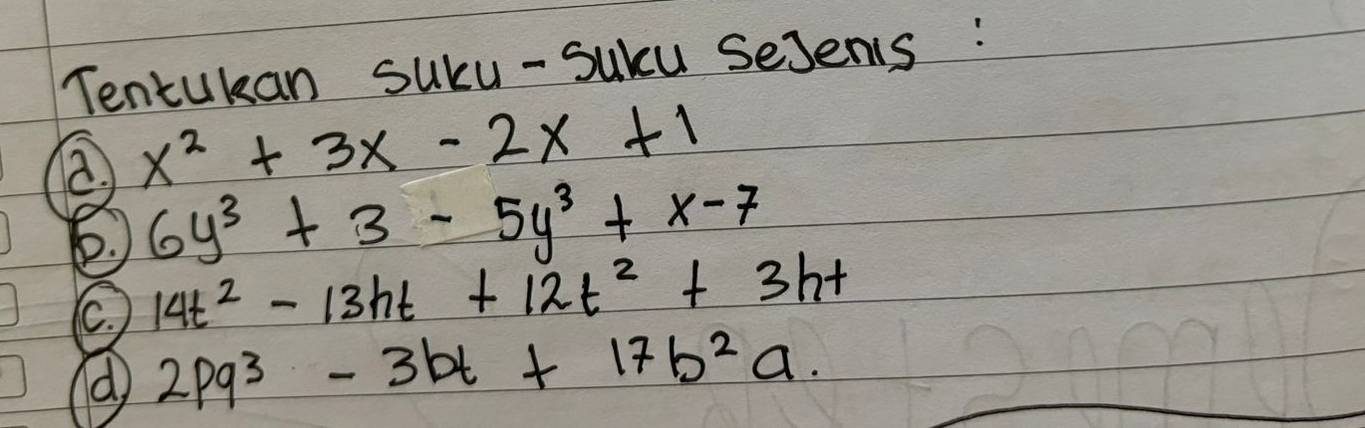 Tentukan suku-suku sejenis :
a. x² + 3x - 2x + 1
b. 6y³ + 3 - 5y³ + x - 7
c. 14t² - 13ht + 12t² + 3ht
d. 2pq³ - 3bt + 17b²a.